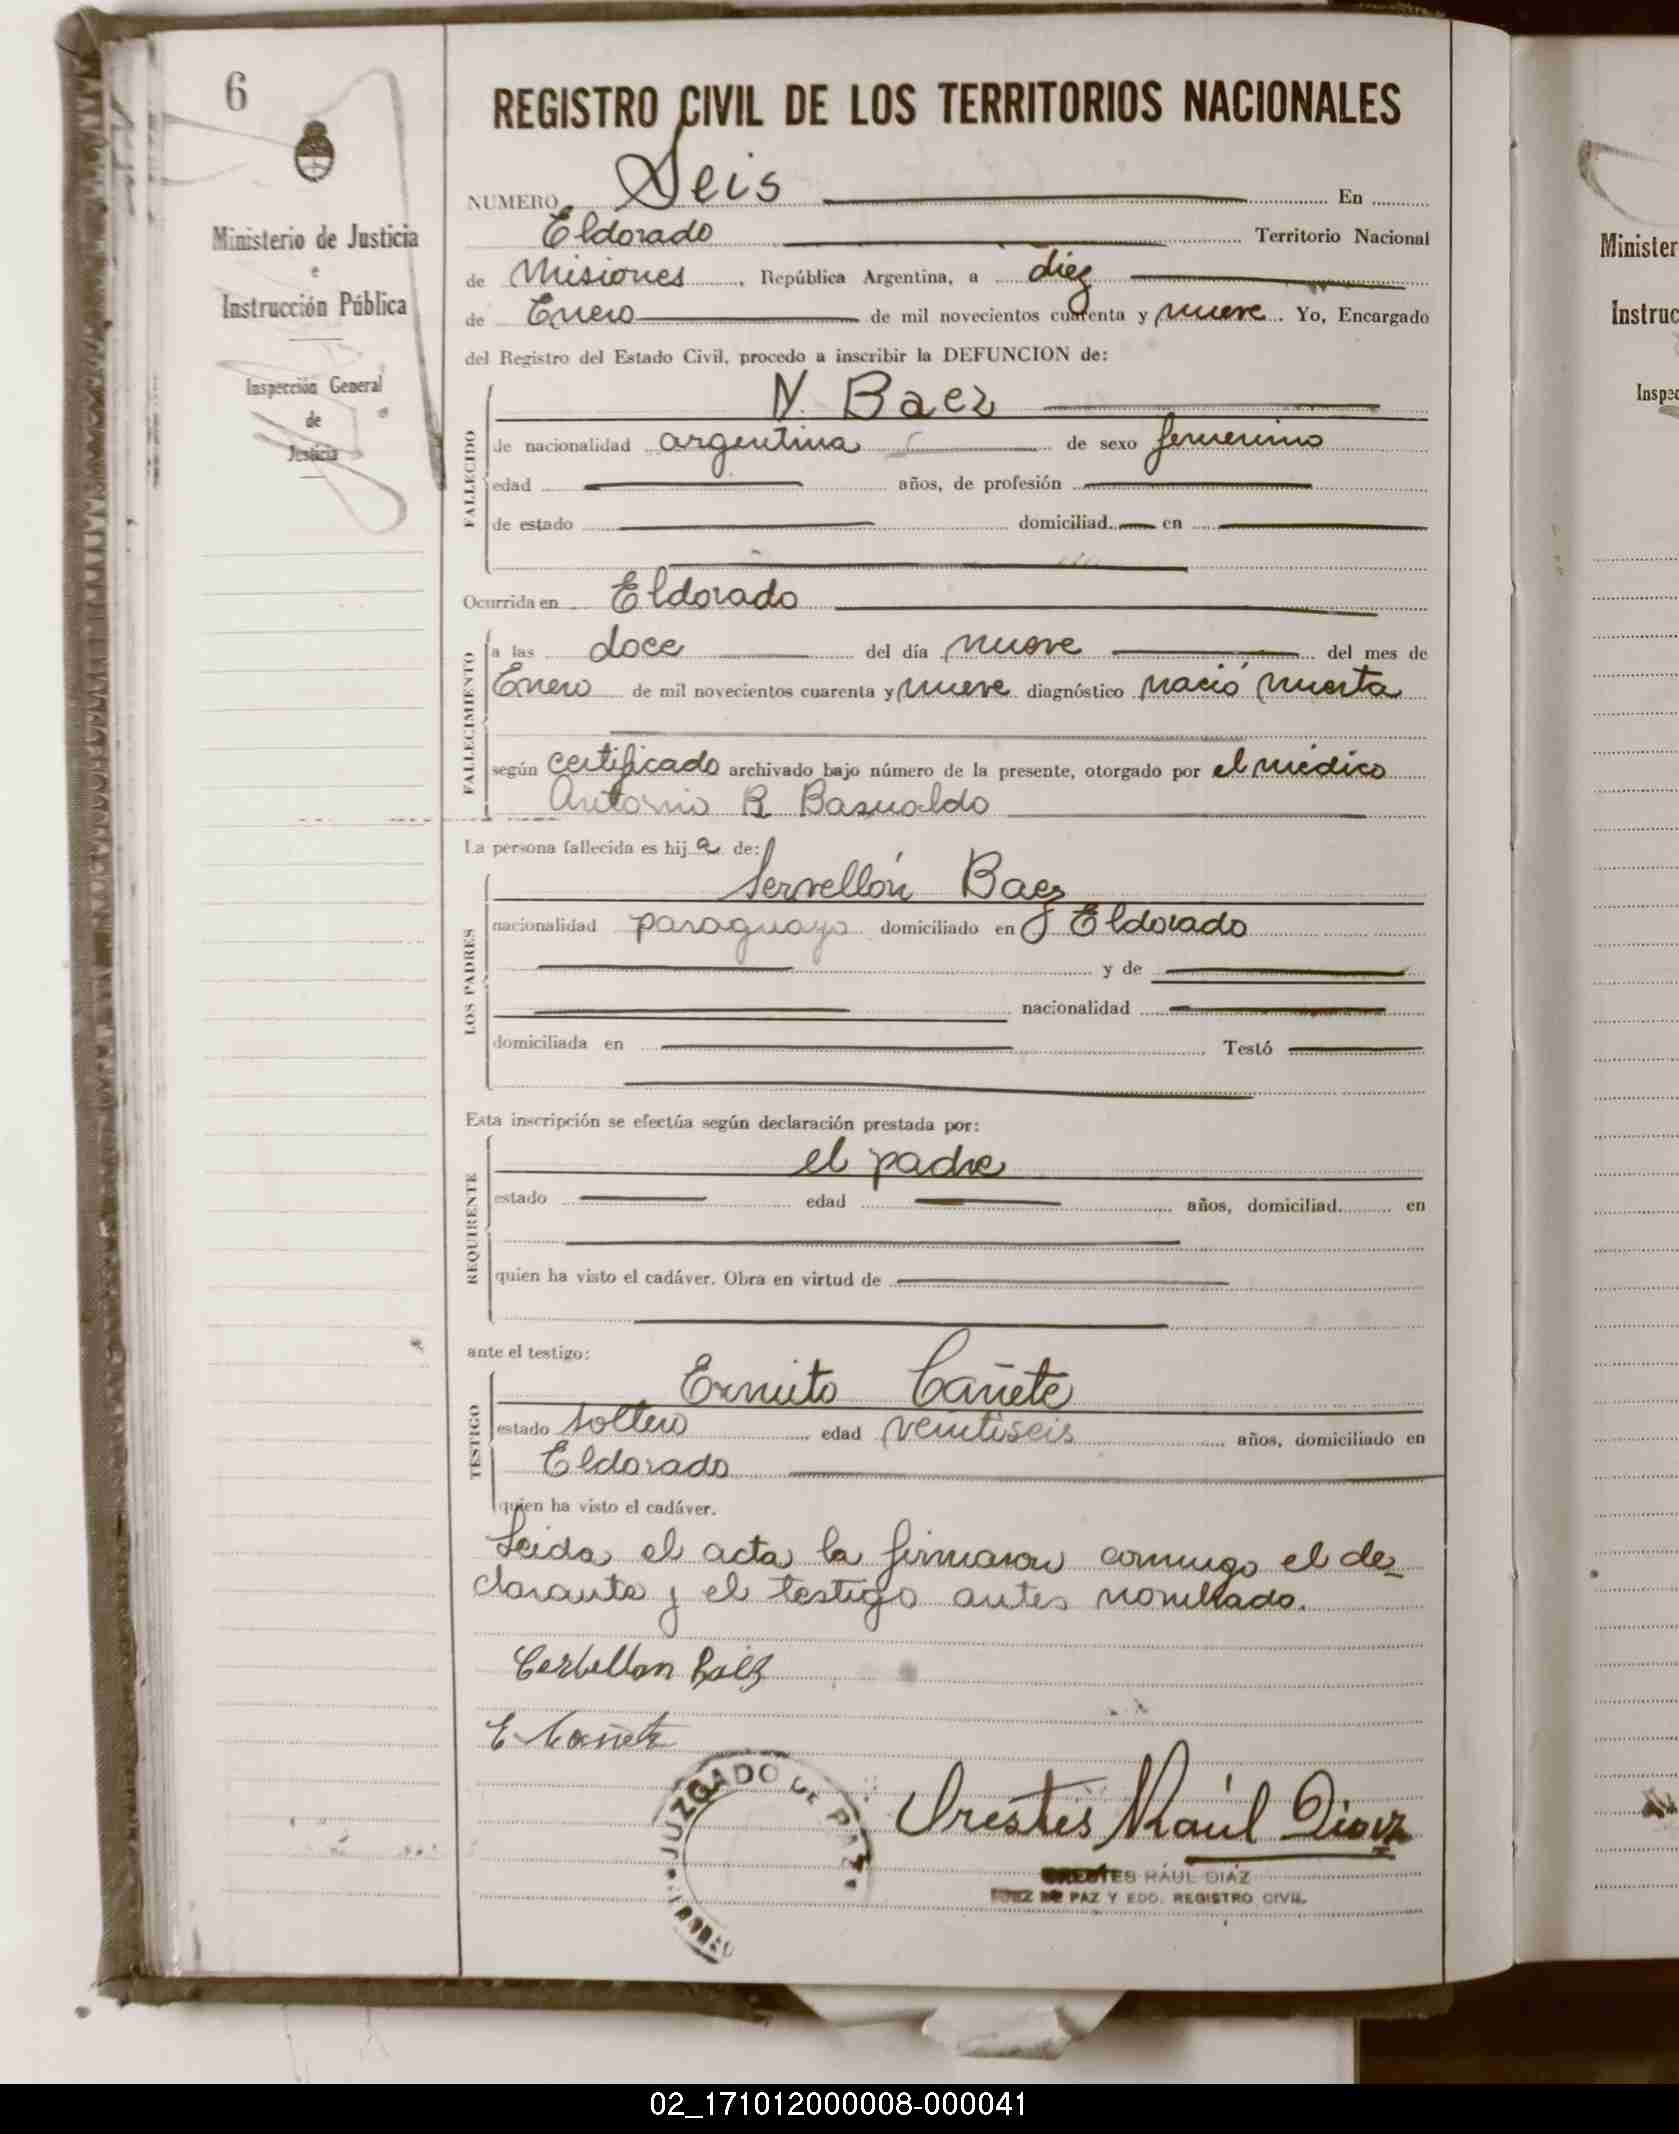 6
REGISTRO CIVIL DE LOS TERRITORIOS NACIONALES
Ministerio de Justicia
e
Instrucción Pública
Inspección General
de
Justicia
NUMERO Seis En
Eldorado Territorio Nacional
de Misiones, República Argentina, a diez
de Enero de mil novecientos cuarenta y nueve. Yo, Encargado
del Registro del Estado Civil, procedo a inscribir la DEFUNCION de:
FALLECIDO
N. Baez
de nacionalidad argentina de sexo femenino
edad años, de profesión
de estado domiciliad en
Ocurrida en Eldorado
FALLECIMIENTO
a las doce del día nueve del mes de
Enero de mil novecientos cuarenta y nueve diagnóstico nació muerta
según certificado archivado bajo número de la presente, otorgado por el médico
Antonio R Basualdo
La persona fallecida es hija de:
LOS PADRES
Servellón Baez
nacionalidad paraguayo domiciliado en Eldorado
y de
nacionalidad
domiciliada en Testó
Esta inscripción se efectúa según declaración prestada por:
REQUIRENTE
el padre
estado edad años, domiciliad en
quien ha visto el cadáver. Obra en virtud de
ante el testigo:
TESTIGO
Ernesto Cañete
estado soltero edad veintiseis años, domiciliado en
Eldorado
quien ha visto el cadáver.
Leida el acta la firmaron conmigo el de-
clarante y el testigo antes nombrado.
Cerbellon Baez
E Cañete
JUZGADO DE PAZ
ELDORADO
Orestes Raúl Diaz
ORESTES RAÚL DIAZ
JUEZ DE PAZ Y EDO. REGISTRO CIVIL
Minister
Instruc
Inspec
02_171012000008-000041